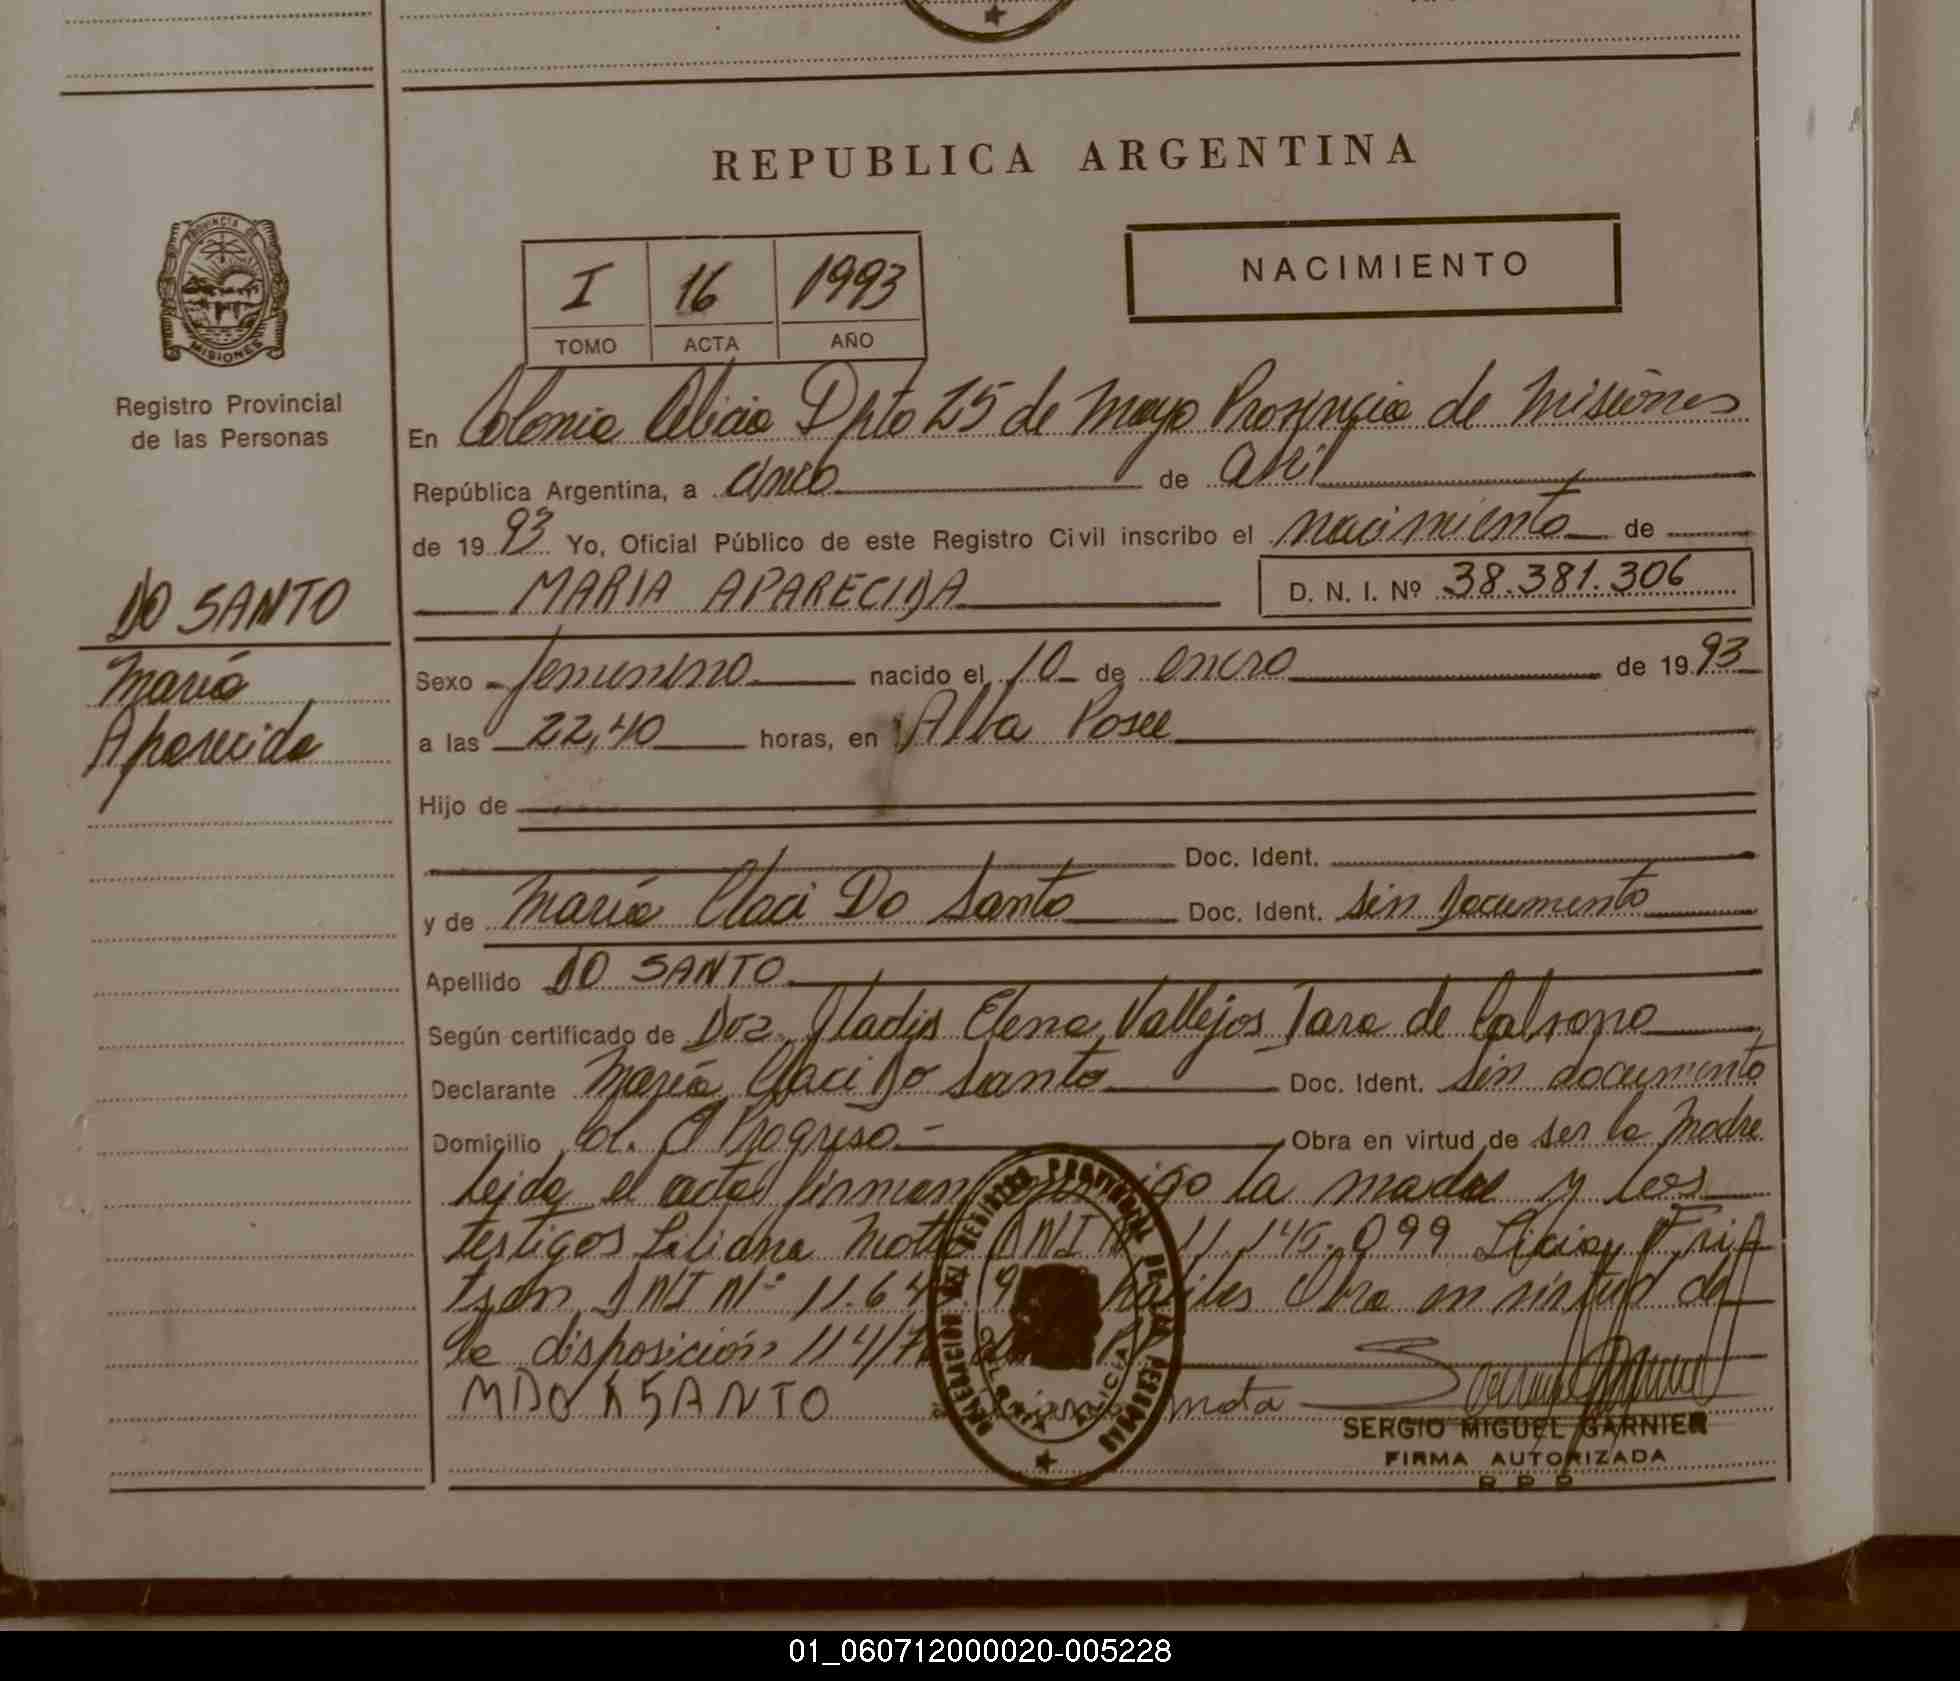 REPUBLICA ARGENTINA
NACIMIENTO
I 16 1993
TOMO ACTA AÑO
PROVINCIA DE
MISIONES
Registro Provincial
de las Personas
DO SANTO
María
Aparecida
En Colonia Alicia Dpto 25 de Mayo Provincia de Misiones
República Argentina, a cinco de Abril
de 1993 Yo, Oficial Público de este Registro Civil inscribo el nacimiento de
MARIA APARECIDA D. N. I. Nº 38.381.306
Sexo femenino nacido el 10 de enero de 1993
a las 22,40 horas, en Alba Posse
Hijo de
Doc. Ident.
y de María Claci Do Santo Doc. Ident. sin documento
Apellido DO SANTO
Según certificado de Dra. Gladis Elena Vallejos Jara de
Declarante María Claci Do Santo Doc. Ident. sin documento
Domicilio Col. El Progreso.- Obra en virtud de ser la madre
Leida el acta firman la madre y los
testigos Liliana Motta DNI Nº 11.145.099
DNI Nº 11.64 Obra en virtud de
la disposición 114/7
M DO SANTO
SERGIO MIGUEL GARNIER
FIRMA AUTORIZADA
R. P. P.
01_060712000020-005228